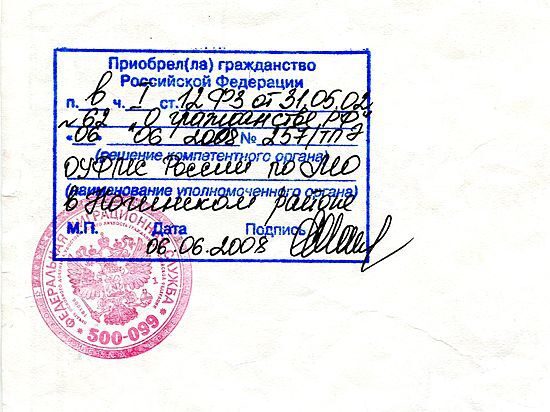 Приобрел(ла) гражданство
Российской Федерации
п. в ч. I ст. 12 ФЗ от 31.05.02
№62 "О гражданстве РФ"
"06" 06 2008 № 257/ТПЭ
(решение компетентного органа)
ОУФМС России по МО
(наименование уполномоченного органа)
в Ногинском районе
М.П. Дата Подпись
06.06.2008
ФЕДЕРАЛЬНАЯ МИГРАЦИОННАЯ СЛУЖБА
* 500-099 *